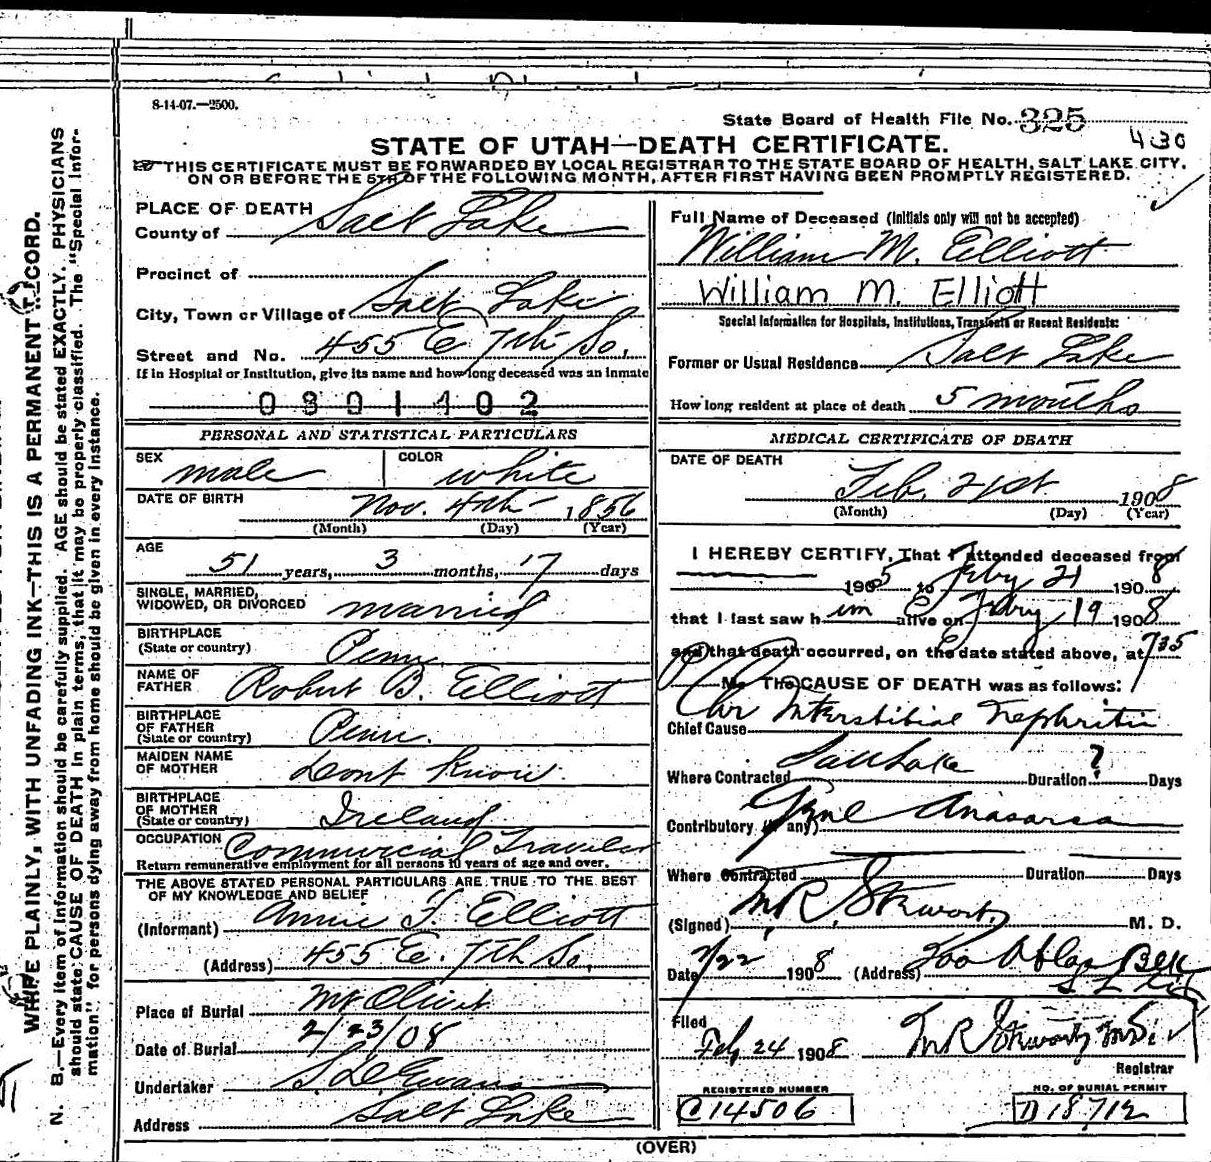 8-14-07.—2500.
State Board of Health File No. 325
430
STATE OF UTAH—DEATH CERTIFICATE.
THIS CERTIFICATE MUST BE FORWARDED BY LOCAL REGISTRAR TO THE STATE BOARD OF HEALTH, SALT LAKE CITY,
ON OR BEFORE THE 5TH OF THE FOLLOWING MONTH, AFTER FIRST HAVING BEEN PROMPTLY REGISTERED.
PLACE OF DEATH
County of Salt Lake
Precinct of
City, Town or Village of Salt Lake
Street and No. 455 E 7th So.
If in Hospital or Institution, give its name and how long deceased was an inmate
0801402
PERSONAL AND STATISTICAL PARTICULARS
SEX male COLOR white
DATE OF BIRTH Nov. 4th 1856
(Month) (Day) (Year)
AGE
51 years, 3 months, 17 days
SINGLE, MARRIED,
WIDOWED, OR DIVORCED married
BIRTHPLACE
(State or country) Penn.
NAME OF
FATHER Robert B. Elliott
BIRTHPLACE
OF FATHER
(State or country) Penn.
MAIDEN NAME
OF MOTHER Dont Know
BIRTHPLACE
OF MOTHER
(State or country) Ireland
OCCUPATION Commercial Traveler
Return remunerative employment for all persons 10 years of age and over.
THE ABOVE STATED PERSONAL PARTICULARS ARE TRUE TO THE BEST
OF MY KNOWLEDGE AND BELIEF
(Informant) Annie T. Elliott
(Address) 455 E. 7th So.
Place of Burial Mt Olivet
Date of Burial 2/23/08
Undertaker S. D. Evans
Address Salt Lake
Full Name of Deceased (Initials only will not be accepted)
William M. Elliott
William M. Elliott
Special Information for Hospitals, Institutions, Transients or Recent Residents:
Former or Usual Residence Salt Lake
How long resident at place of death 5 months
MEDICAL CERTIFICATE OF DEATH
DATE OF DEATH
Feb. 21st 1908
(Month) (Day) (Year)
I HEREBY CERTIFY, That I attended deceased from
1905 to Feby 21 1908
that I last saw him alive on Febry 19 1908
and that death occurred, on the date stated above, at 735
M. The CAUSE OF DEATH was as follows:
Chr Interstitial Nephritis
Chief Cause
Where Contracted Salt Lake Duration ? Days
Contributory (if any) Genl Anasarca
Where Contracted Duration Days
(Signed) M. R. Stewart, M. D.
Date 2/22 1908 (Address)
Filed
Feb 24 1908 M R Stewart M.D.
Registrar
REGISTERED NUMBER
C14506
NO. OF BURIAL PERMIT
D18712
(OVER)
WRITE PLAINLY, WITH UNFADING INK—THIS IS A PERMANENT RECORD.
N. B.—Every item of information should be carefully supplied. AGE should be stated EXACTLY. PHYSICIANS
should state CAUSE OF DEATH in plain terms, that it may be properly classified. The "Special Infor-
mation" for persons dying away from home should be given in every instance.